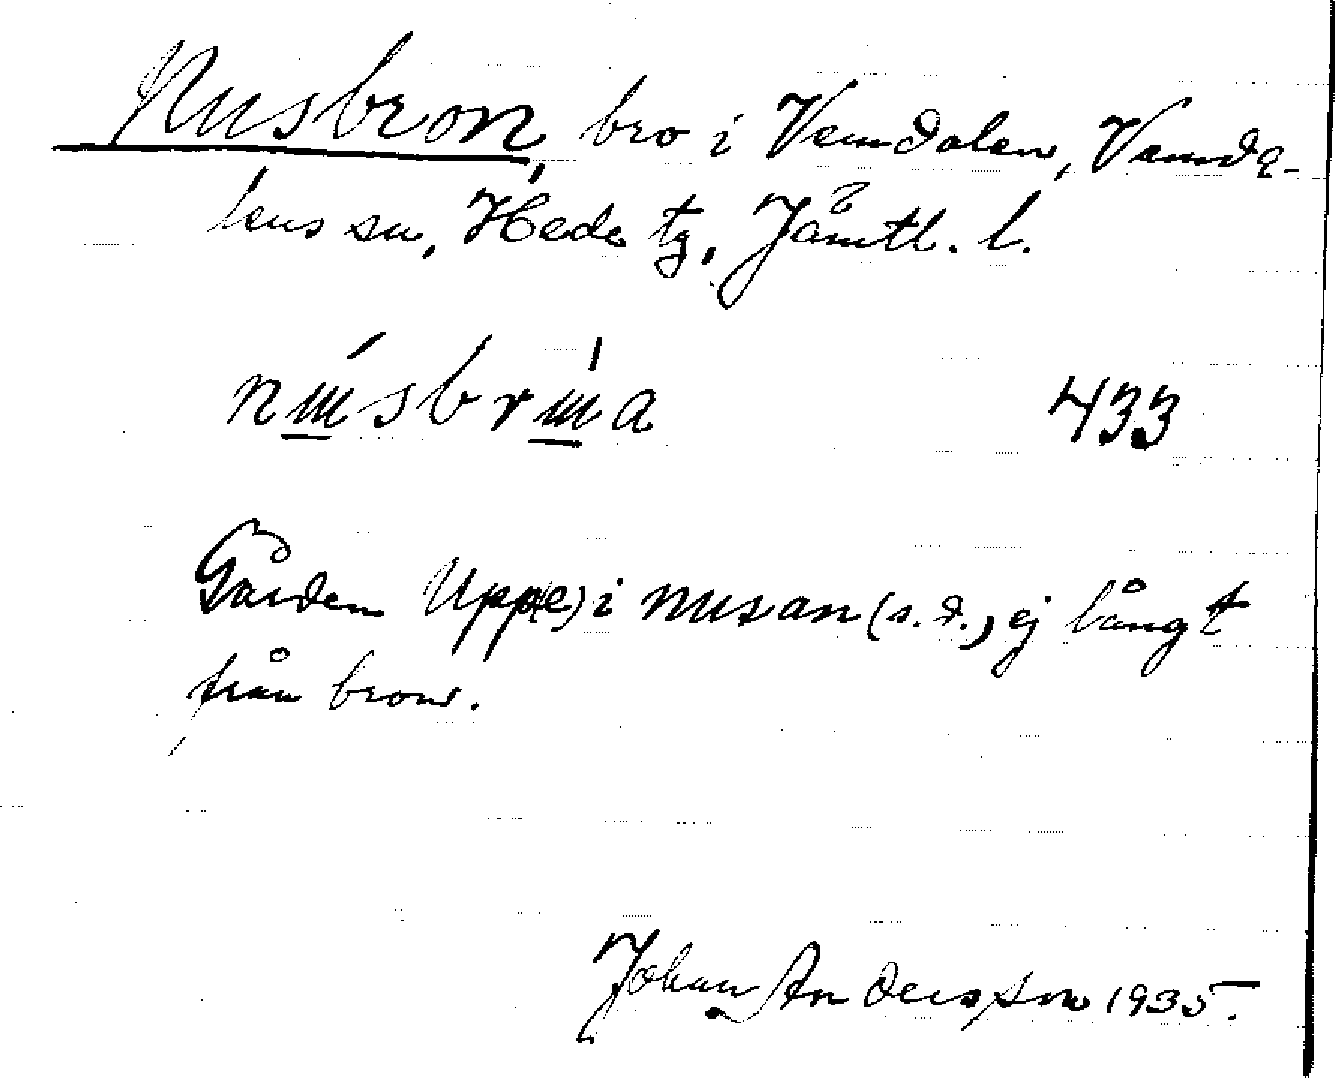 Nusbron, bro i Vemdalen, Vemda-
lens sn, Hede tg, Jämtl. l.
nɯ́sbrɯ́a 433
Gården Upp(e) i nusan (s.d.), ej långt
från bron.
Johan Andersson 1935.